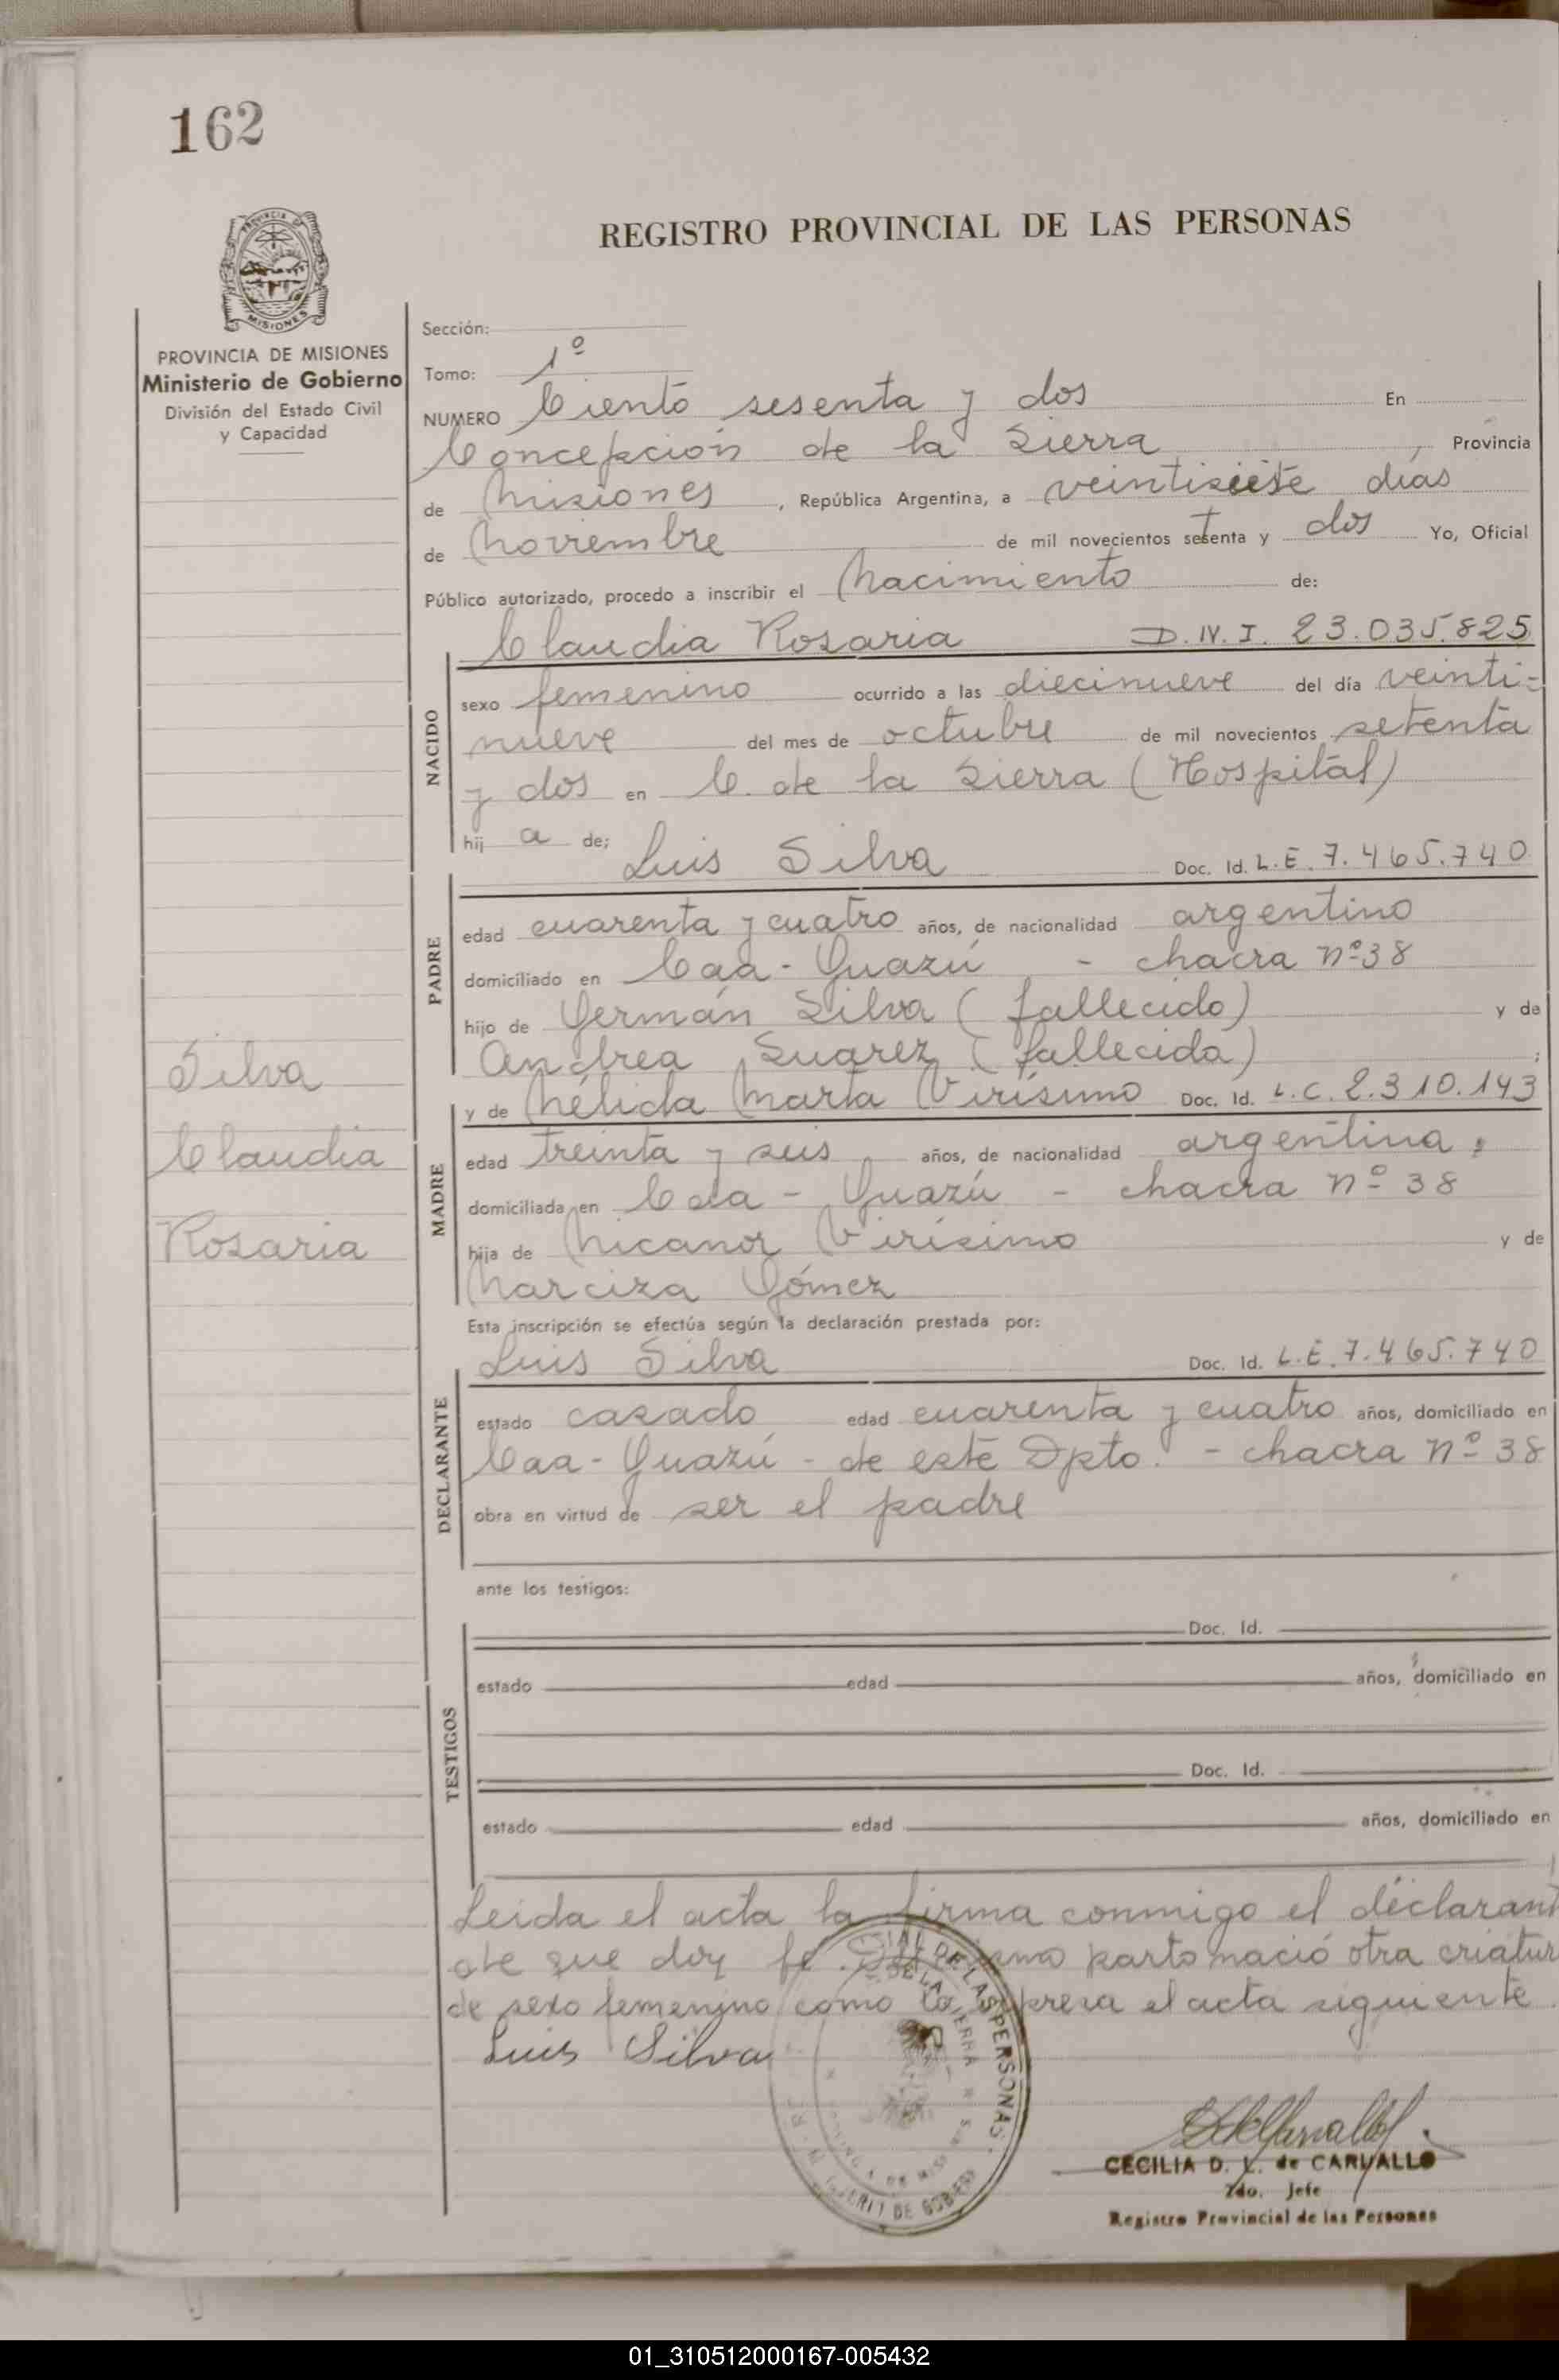 162
REGISTRO PROVINCIAL DE LAS PERSONAS
PROVINCIA DE
MISIONES
PROVINCIA DE MISIONES
Ministerio de Gobierno
División del Estado Civil
y Capacidad
Sección:
Tomo: 1º
NUMERO Ciento sesenta y dos En
Concepción de la Sierra, Provincia
de Misiones, República Argentina, a veintisiete días
de Noviembre de mil novecientos setenta y dos Yo, Oficial
Público autorizado, procedo a inscribir el Nacimiento de:
Claudia Rosaria D.N.I. 23.035.825
NACIDO
sexo femenino ocurrido a las diecinueve del día veinti-
nueve del mes de octubre de mil novecientos setenta
y dos en C. de la Sierra (Hospital)
hij a de; Luis Silva Doc. Id. L.E. 7.465.740
PADRE
edad cuarenta y cuatro años, de nacionalidad argentino
domiciliado en Caa-Guazú - chacra nº 38
hijo de Germán Silva (fallecido) y de
Andrea Suarez (fallecida) ;
y de Nélida Marta Virísimo Doc. Id. L.C. 2.310.143
MADRE
edad treinta y seis años, de nacionalidad argentina,
domiciliada en Caa - Guazú - chacra nº 38
hija de Nicanor Virísimo y de
Narciza Gómez
Silva
Claudia
Rosaria
Esta inscripción se efectúa según la declaración prestada por:
Luis Silva Doc. Id. L.E. 7.465.740
DECLARANTE
estado casado edad cuarenta y cuatro años, domiciliado en
Caa-Guazú - de este Dpto. - chacra nº 38
obra en virtud de ser el padre
ante los testigos:
TESTIGOS
Doc. Id.
estado edad años, domiciliado en
Doc. Id.
estado edad años, domiciliado en
Leida el acta la firma conmigo el declarant
de que doy fé. parto nació otra criatur
de sexo femenino como lo expresa el acta siguiente.
Luis Silva
DE LAS PERSONAS
DE GOBIERN
CECILIA D. L. de CARVALLO
2do. Jefe
Registro Provincial de las Personas
01_310512000167-005432